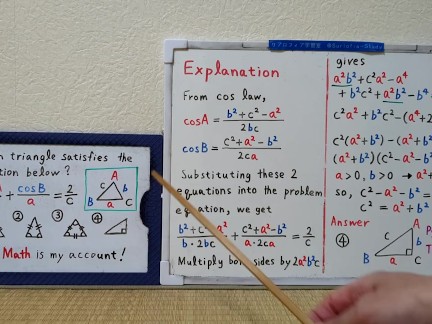 n triangle satisfies the
tion below?
+ cosB/a = 2/c
A
c b
B a C
② ③ ④
Math is my account!
Explanation
From cos law,
cosA = b²+c²-a²/2bc
cosB = c²+a²-b²/2ca
Substituting these 2
equations into the problem
equation, we get
b²+c²-a²/b·2bc + c²+a²-b²/a·2ca = 2/c
Multiply both sides by 2a²b²c
gives
a²b²+c²a²-a⁴
+b²c²+a²b²-b⁴
c²a²+b²c²-(a⁴+2
c²(a²+b²)-(a²+b
(a²+b²)(c²-a²-b
a>0, b>0 → a²+
so, c²-a²-b²=
c²=a²+b²
Answer
④
c A
B a C